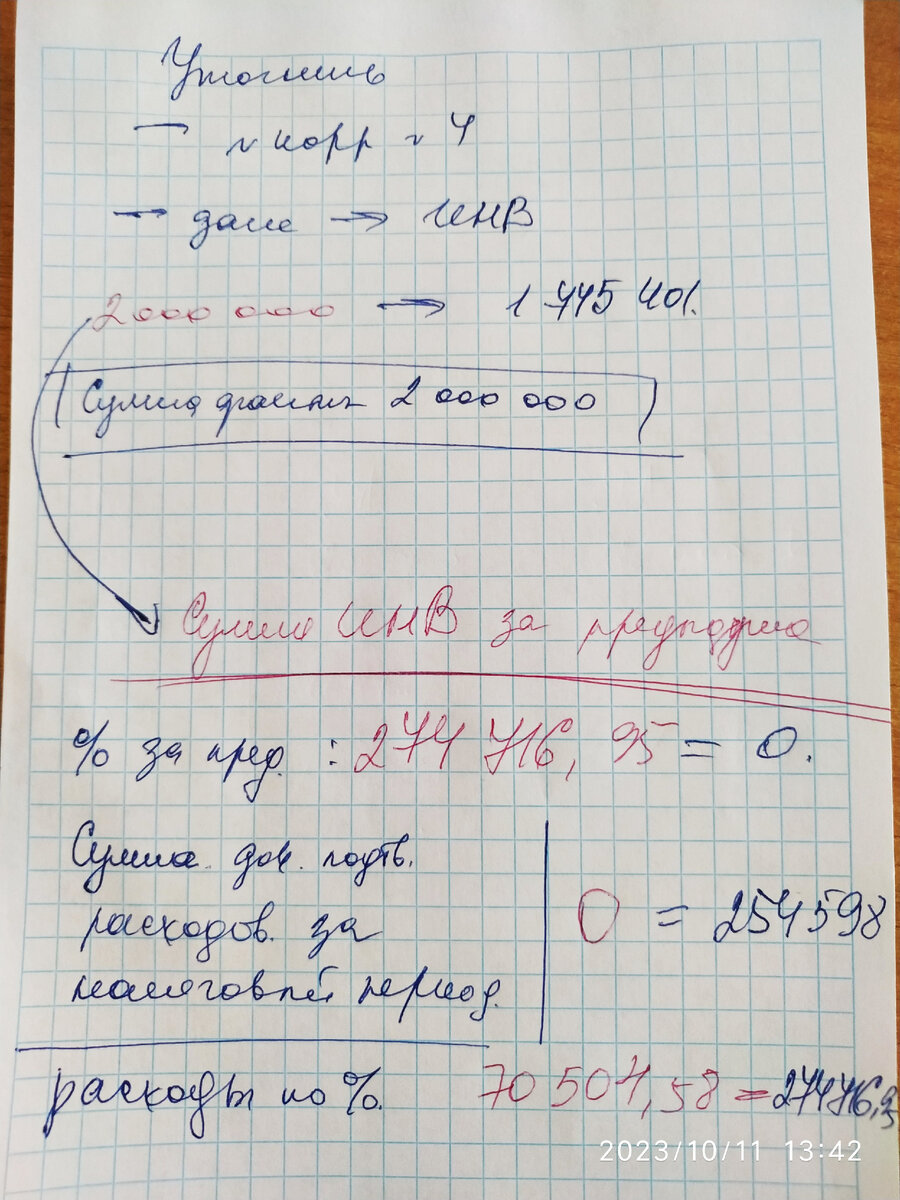 Уточнить
— № корр № 4
— далее → ИНВ
2 000 000 → 1 745 401.
Сумма 2 000 000
Сумма ИНВ за
% за пред. : 274 716, 95 = 0.
Сумма док. подтв.
расходов. за
налоговый период.
0 = 254598
расходы по %. 70 504,58 = 274716,95
2023/10/11 13:42